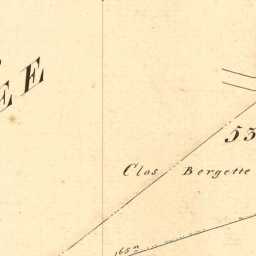 EE
53
Clos Bergette
165a